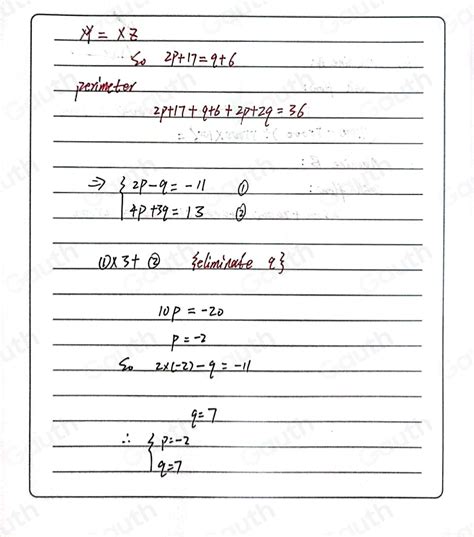 XY = XZ
So 2p+17=q+6
perimeter
2p+17+q+6+2p+2q=36
⇒ { 2p-q=-11 ①
4p+3q=13 ②
①x3+② {eliminate q}
10p=-20
p=-2
So 2x(-2)-q=-11
q=7
∴ { p=-2
q=7